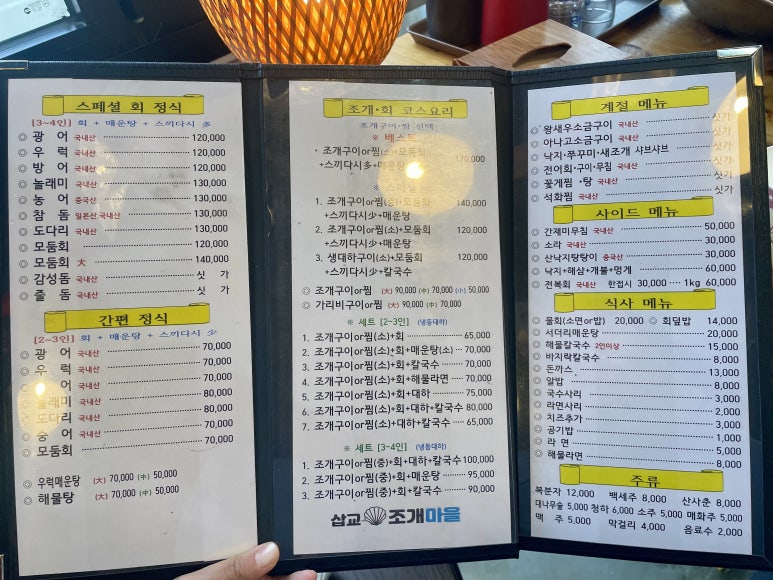 스페셜 회 정식
[3~4인] 회 + 매운탕 + 스끼다시 多
◎ 광 어 국내산 120,000
◎ 우 럭 국내산 120,000
◎ 방 어 국내산 120,000
◎ 놀래미 국내산 130,000
◎ 농 어 중국산 130,000
◎ 참 돔 일본산,국내산 130,000
◎ 도다리 국내산 130,000
◎ 모둠회 120,000
◎ 모둠회 大 140,000
◎ 감성돔 국내산 싯 가
◎ 줄 돔 국내산 싯 가
간편 정식
[2~3인] 회 + 매운탕 + 스끼다시 少
◎ 광 어 국내산 70,000
◎ 우 럭 국내산 70,000
◎ 어 국내산 70,000
◎ 놀래미 국내산 80,000
◎ 도다리 국내산 80,000
◎ 어 국내산 70,000
◎ 모둠회 70,000
◎ 우럭매운탕 (大) 70,000 (中) 50,000
◎ 해물탕 (大) 70,000 (中) 50,000
조개·회 코스요리
조개구이·찜 선택
※ 베스트
· 조개구이or찜(소)+모둠회 170,000
+스끼다시多+매운탕
※ 스페셜
1. 조개구이or찜(중)+모둠회 140,000
+스끼다시少+매운탕
2. 조개구이or찜(소)+모둠회 120,000
+스끼다시少+매운탕
3. 생대하구이(소)+모둠회 120,000
+스끼다시少+칼국수
◎ 조개구이or찜 (大) 90,000 (中) 70,000 (小) 50,000
◎ 가리비구이or찜 (大) 90,000 (中) 70,000
※ 세트 [2~3인] (냉동대하)
1. 조개구이or찜(소)+회 65,000
2. 조개구이or찜(소)+회+매운탕(소) 70,000
3. 조개구이or찜(소)+회+칼국수 70,000
4. 조개구이or찜(소)+회+해물라면 70,000
5. 조개구이or찜(소)+회+대하 75,000
6. 조개구이or찜(소)+회+대하+칼국수 80,000
7. 조개구이or찜(소)+대하+칼국수 65,000
※ 세트 [3~4인] (냉동대하)
1. 조개구이or찜(중)+회+대하+칼국수 100,000
2. 조개구이or찜(중)+회+매운탕 95,000
3. 조개구이or찜(중)+회+칼국수 90,000
삽교 조개마을
계절 메뉴
◎ 왕새우소금구이 국내산 싯가
◎ 아나고소금구이 국내산 싯가
◎ 낙지·쭈꾸미·새조개 샤브샤브 싯가
◎ 전어회·구이·무침 국내산 싯가
◎ 꽃게찜 ·탕 국내산 싯가
◎ 석화찜 국내산 싯가
사이드 메뉴
◎ 간재미무침 국내산 50,000
◎ 소라 국내산 30,000
◎ 산낙지탕탕이 중국산 30,000
◎ 낙지+해삼+개불+멍게 60,000
◎ 전복회 국내산 한접시 30,000 ···· 1kg 60,000
식사 메뉴
◎ 물회(소면or밥) 20,000 ◎ 회덮밥 14,000
◎ 서더리매운탕 20,000
◎ 해물칼국수 2인이상 15,000
◎ 바지락칼국수 8,000
◎ 돈까스 13,000
◎ 알밥 8,000
◎ 국수사리 3,000
◎ 라면사리 2,000
◎ 치즈추가 3,000
◎ 공기밥 1,000
◎ 라 면 5,000
◎ 해물라면 8,000
주류
복분자 12,000 백세주 8,000 산사춘 8,000
대나무술 5,000 청하 6,000 소주 5,000 매화주 5,000
맥 주 5,000 막걸리 4,000 음료수 2,000